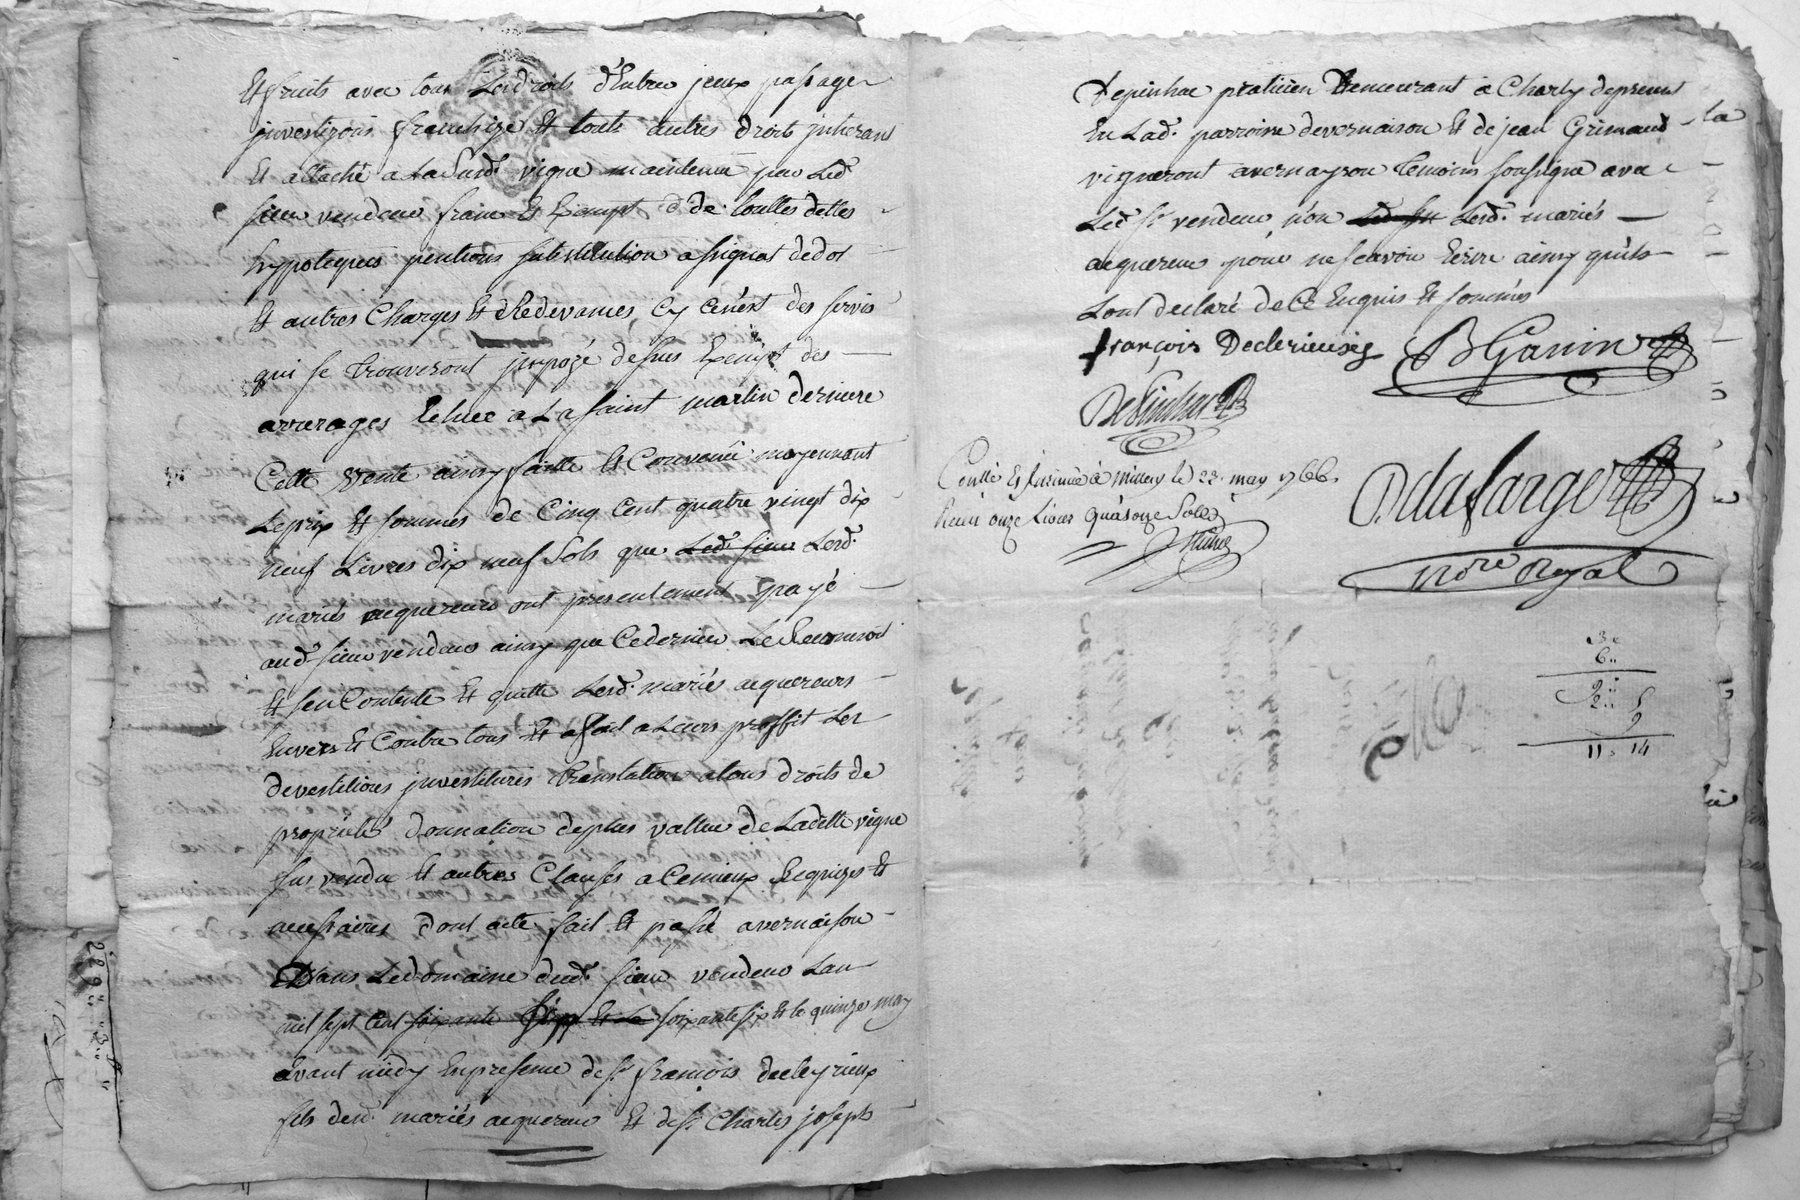 Et fruits avec tous Lesdroits d'Entrée jeux passage
jnvestizons franchize Et touts autres droits jnherans
Et attaché a La Surd.e vigne maintenue par Led.
sieur vendeur franc Et Exempt d de touttes dettes
hypoteques pentions substitution assignat dedot
Et autres Charges Et Redevances, Cy cen'est des servis
qui se trouveront jmpozé dessus Exempt des
arrerages Echue a La saint martin derniere
Cette vente ainsy faitte Et Convenüe moyennant
Leprix Et sommes de Cinq Cent quatre vingt dix
neuf Livres dix neuf Sols que Led. sieur Lesd.
mariés acquereurs ont presentement payé
aud. sieur vendeur ainsy que Cedernier Le Reconnoit
Et sen Contente Et quitte Lesd. mariés acquereurs
Envers Et Contre tous Et a fait a Leurs proffit Les
devestitions jnvestitures translation atous droits de
proprieté donnation deplus vallue de Laditte vigne
sus vendue Et autres Clauses a Cennecex Requizes Et
necessaires dont acte fait Et passé avernaison
Dans Ledomaine dud. sieur vendeur Lan
mil sept Cent soixante Et Le soixante six Et le quinze may
avant midy Enpresence de S.r francois decleyrieux
fils desd. mariés acquereur Et de S.r Charles joseph
Depinhac praticien Demeurant a Charly depresent
En Lad. parroisse devernaison Et de jean Grimaud
vigneront avernayson temoins soussigné avec
Led. S.r vendeur, non Lesd. mariés
acquereur pour ne scavoir Ecrire ainsy quils
Lont declaré de Ce Enquis Et sommés
la
françois Declerieux
B Ganin
Depinhac
Conllé Et Insinué à Millery le 23. may 1766.
Recu onze Livres Quatorze Sols
Dufarge
no.re Royal
3"
6"
2"
2"
9
11 " 14